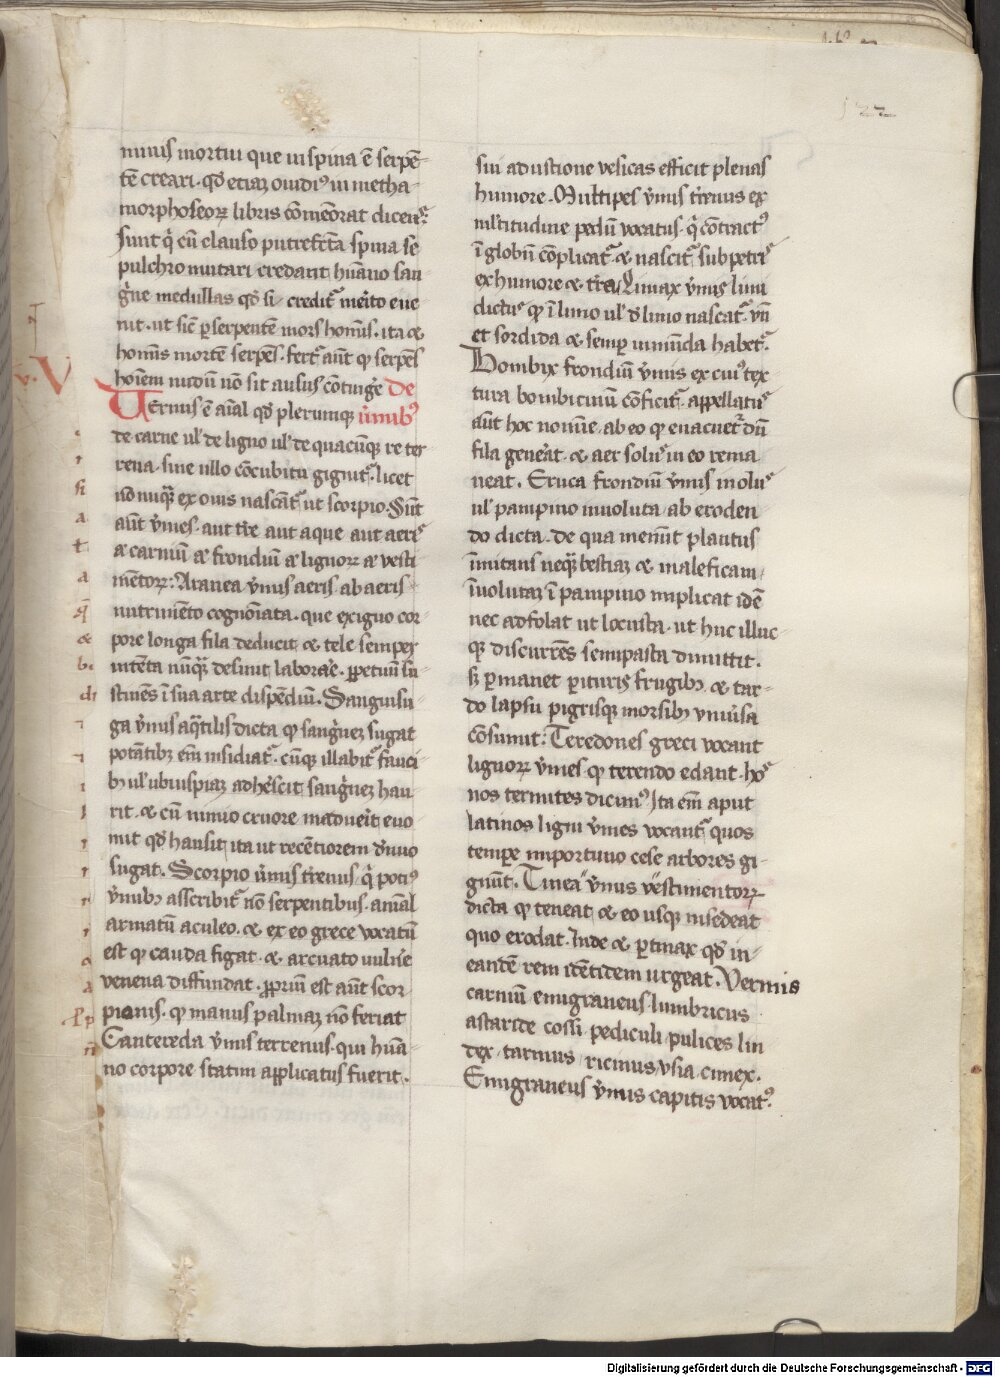 122
minis mortui que in spina ē serpē-
tē creari. qd̄ etiaꝫ ouidiꝰ in metha-
morphoseoꝝ libris cōmēorat dicens.
sunt qͥ cū clauso putrefcā spina se-
pulchro mutari credant hūano san
gͥne medullas qd̄ si credit᷑ meͥto eue
nit. ut sic̄ ꝑ serpentē mors homīs. ita ⁊
homīs mortē serpēs. fert᷑ aūt ꝙ serpēs
hoīem nudū nō sit ausus cōtingͤe De
Uermis ē aīal qd̄ plerumqꝫ ūmibꝰ
de carne ul̓ de ligno ul̓ de quacūqꝫ re ter
rena. sine ullo cōcubitu gignit᷑. licet
nōnūqͣꝫ ex ouis nascāt᷑ ut scorpio. Sūt
aūt ūmes. aut tͥre aut aque aut aeris
⁊ carniū ⁊ frondiū ⁊ lignoꝝ ⁊ vesti
mētoꝝ: Aranea ūmis aeris. ab aeris
nutrimēto cognoīata. que exiguo cor
pore longa fila deducit ⁊ tele semper
intēta nūqͣꝫ desinit laborae. ꝑpetuū su
stinēs ī sua arte dispēdiū. Sanguisu-
ga ūmis aqͣtilis dicta ꝙ sangͥneꝫ sugat
potātibꝫ em̄ insidiat᷑. cūqꝫ illabit᷑ fauci
bꝫ ul̓ ubiuspiaꝫ adhēscit sangͥneꝫ hau
rit. ⁊ cū nimio cruore maduerit euo
mit qd̄ hausit. ita ut recētiorem dͤnuo
sugat. Scorpio ūmis tͥrenus. qͥ potiꝰ
ūmibꝫ asscribit᷑ nō serpentibus. animal
armatū aculeo. ⁊ ex eo grece vocatū
est ꝙ cauda figat. ⁊ arcuato vulnͥe
venena diffundat. ꝓpriū est aūt scor
pionis. ꝙ manus palmaꝫ nō feriat
Cantereda ūmis terrenus. qui hūa
no corpore statim applicatus fuerit.
sui adustione vesicas efficit plenas
humore. Multipes ūmis tͥrenus ex
ml̓titudine pedū vocatus. qͥ cōtractꝰ
ī globū cōplicat᷑ ⁊ nascit᷑ sub petris
ex humore ⁊ tͥra. Limax ūmis limi
dictus ꝙ ī limo ul̓ dͤ limo nascat᷑. vn̄
et sordida ⁊ semꝑ inmūda habet᷑.
Bombix frondiū ūmis ex cuiꝰ tex
tura bombicinū cōficit᷑. appellatus
aūt hoc nomine. ab eo ꝙ euacuet᷑ dū
fila genͥat. ⁊ aer solus in eo rema
neat. Eruca frondiū ūmis in olus
ul̓ pampino inuoluta. ab eroden
do dicta. de qua meminit plautus
īmitans neqͣꝫ bestiaꝫ ⁊ maleficam
īuolutaꝫ ī pampino implicat idē
nec adfolat ut locusta. ut huc illuc
qꝫ discurrēs semipasta dimittit.
sꝫ ꝑmanet ꝑituris frugibꝫ. ⁊ tar-
do lapsu pigrisqꝫ morsibꝫ vniūsa
cōsumit: Teredones greci vocant
lignoꝝ ūmes. ꝙ terendo edant. hos
nos termites dicimꝰ Ita em̄ aput
latinos ligni ūmes vocant᷑ quos
tempe importuno cese arbores gi-
gnūt. Tinea ūmus vestimentoꝝ
dicta ꝙ teneat ⁊ eo usqꝫ insedeat
quo erodat. Inde ⁊ ꝑtinax qd̄ in-
eandē rem idētidem urgeat. Vermis
carniū emigraneus. lumbricus
astaride cossi pediculi. pulices. lin
dex. tarmus. ricinus. vsia. cimex.
Emigraneus ūmis capitis vocat᷑.
Digitalisierung gefördert durch die Deutsche Forschungsgemeinschaft - DFG